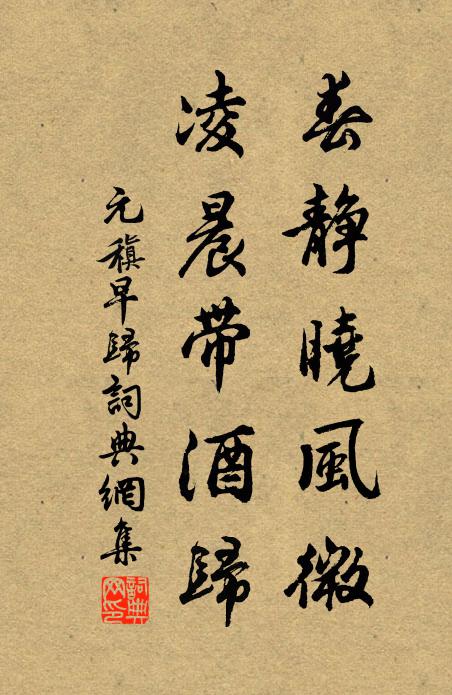 春静曉風微
凌晨帶酒歸
元稹早歸詞典網集
詞典網印